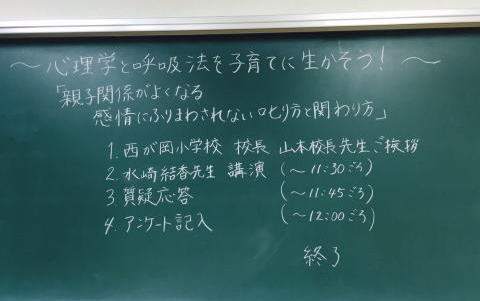 ～心理学と呼吸法を子育てに生かそう！～
「親子関係がよくなる
感情にふりまわされない叱り方と関わり方」
1. 西が岡小学校 校長 山本校長先生ご挨拶
2. 水崎結香先生 講演 (～11:30ごろ)
3. 質疑応答 (～11:45ごろ)
4. アンケート記入 (～12:00ごろ)
終了